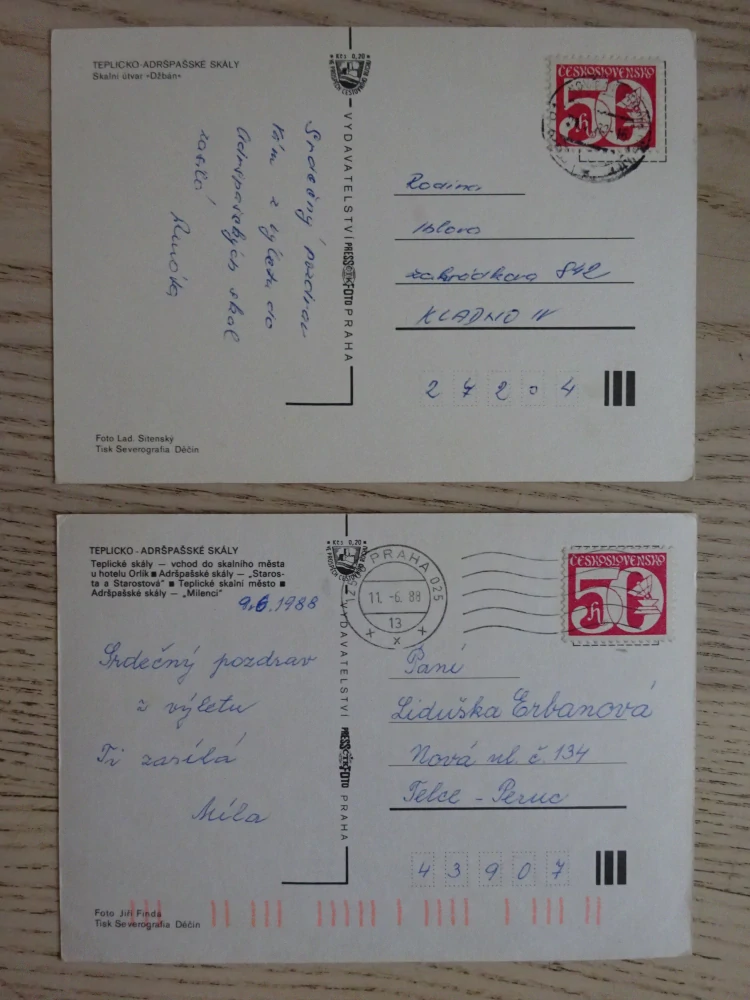 TEPLICKO-ADRŠPAŠSKÉ SKÁLY
Skalní útvar »Džbán«
Kčs 0,20
VYDAVATELSTVÍ PRESSFOTO PRAHA
ČESKOSLOVENSKO
50
h
Srdečný pozdrav
Vám z výletu do
Adršpašských skal
zasílá
Rodina
Zahrádkova 842
KLADNO IV
27204
Foto Lad. Sitenský
Tisk Severografia Děčín
TEPLICKO-ADRŠPAŠSKÉ SKÁLY
Teplické skály — vchod do skalního města
u hotelu Orlík ■ Adršpašské skály — „Staros-
ta a Starostová" ■ Teplické skalní město ■
Adršpašské skály — „Milenci"
9.6.1988
Kčs 0,20
VYDAVATELSTVÍ PRESSFOTO PRAHA
PRAHA 025
11. -6. 88
13
ČESKOSLOVENSKO
50
h
Srdečný pozdrav
z výletu
Ti zasílá
Míla
Paní
Liduška Erbanová
Nová ul. č. 134
Telce - Peruc
43907
Foto Jiří Finda
Tisk Severografia Děčín